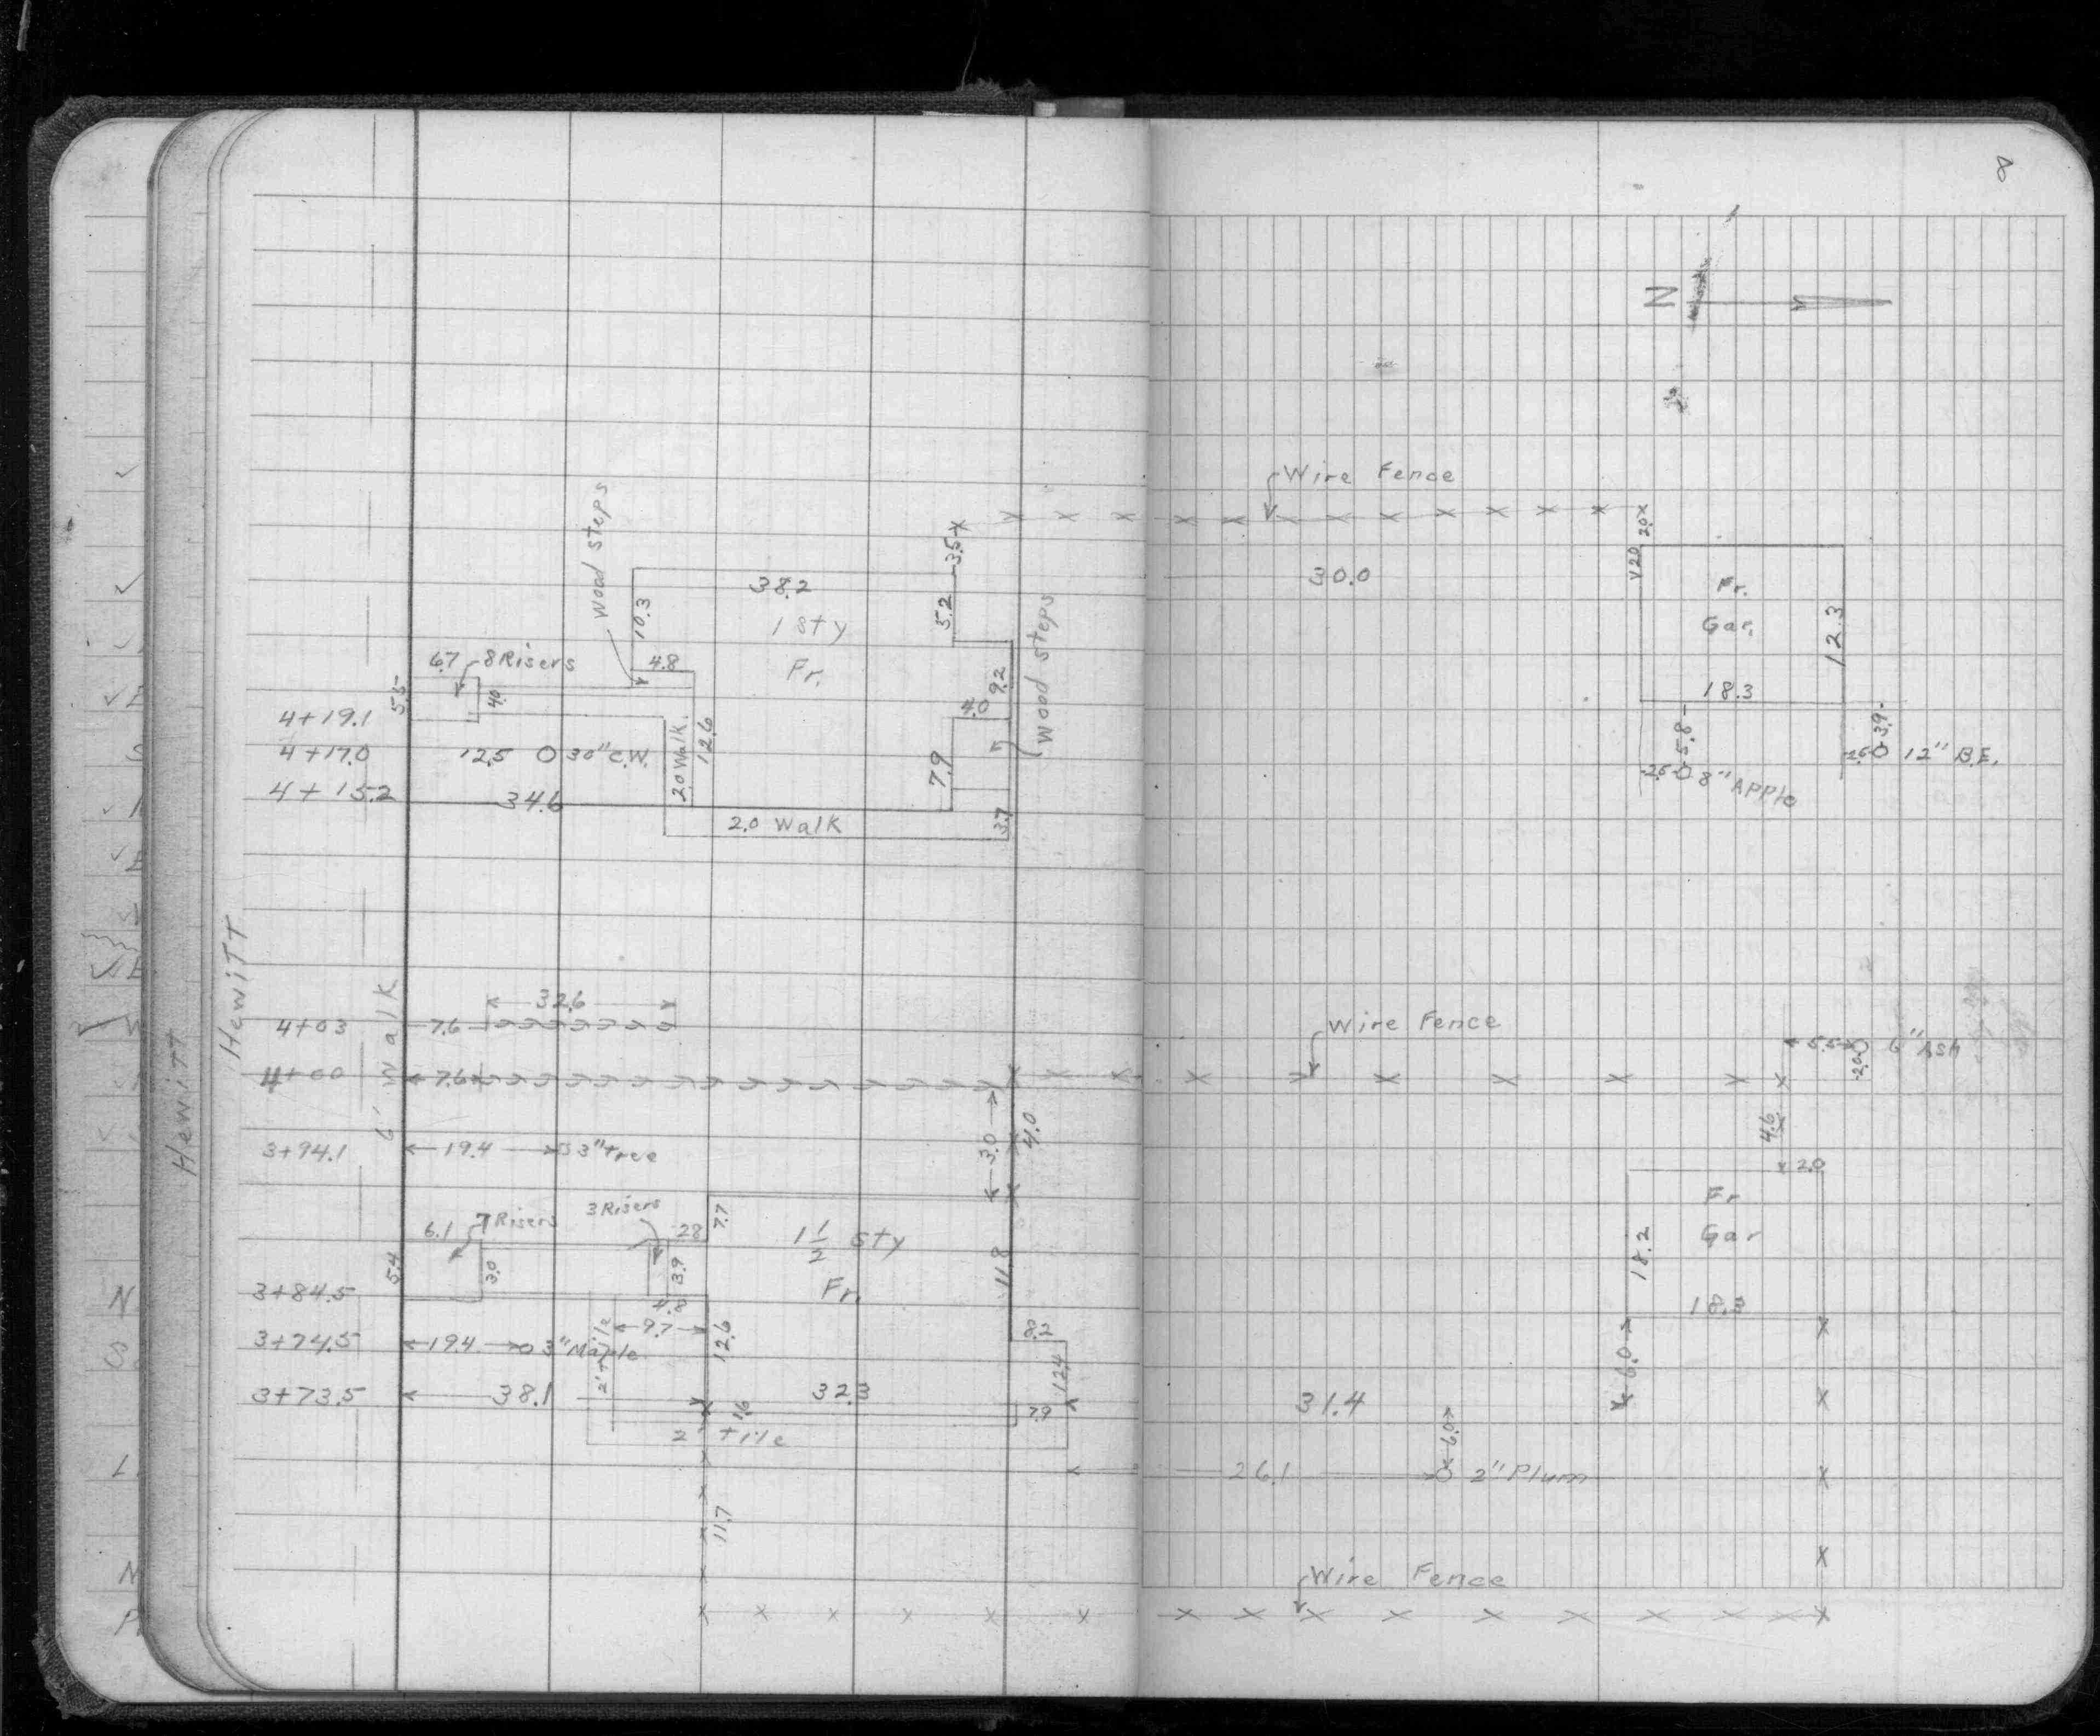 8
N
Wire Fence
Wood Steps
3.5
2.0
2.0
38.2
30.0
Fr.
10.3
5.2
1 Sty
Gar.
12.3
Wood Steps
6.7
8 Risers
4.8
Fr.
9.2
18.3
5.5
4.0
4.0
4+19.1
5.8
3.9
4+17.0
12.5
30" C.W.
2.0 Walk
12.6
7.9
2.6
12" B.E.
2.6
8" Apple
4+15.2
34.6
2.0 Walk
3.7
Hewitt
Hewitt
6' Walk
32.6
4+03
7.6
Wire Fence
5.5
6" Ash
2.0
4+00
7.6
3.0
4.0
4.6
3+94.1
19.4
3" Tree
2.0
6.1
7 Risers
3 Risers
2.8
7.7
1 1/2 Sty
Fr
Gar
5.4
3.0
3.9
11.8
18.2
3+84.5
4.8
Fr.
18.3
9.7
3+74.5
19.4
3" Maple
2' tile
12.6
8.2
12.4
6.0
3+73.5
38.1
32.3
7.9
31.4
1.6
2' tile
6.0
26.1
2" Plum
11.7
Wire Fence